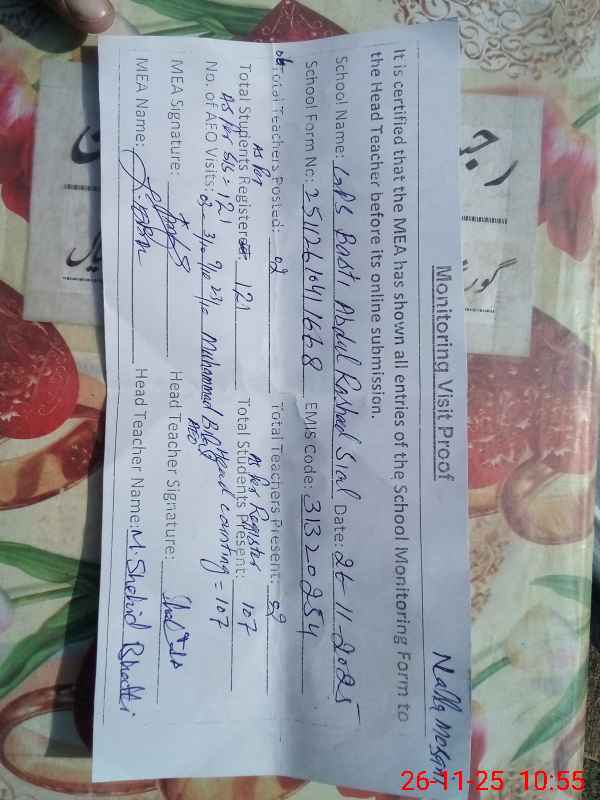 Monitoring Visit Proof
It is certified that the MEA has shown all entries of the School Monitoring Form to
the Head Teacher before its online submission.
School Name: GPS Basti Abdul Rasheed Sial Date: 26-11-2025
School Form No: 25112610411668 EMIS Code: 31320254
Total Teachers Posted: 02 Total Teachers Present: 02
As Per As Per Register
Total Students Registered: 121 Total Students Present: 107
As Per SIS = 121 Head counting = 107
No. of AEO Visits: 03 Muhammad AEO
MEA Signature: Head Teacher Signature:
MEA Name: Head Teacher Name: M. Shahid Bhatti
26-11-25 10:55